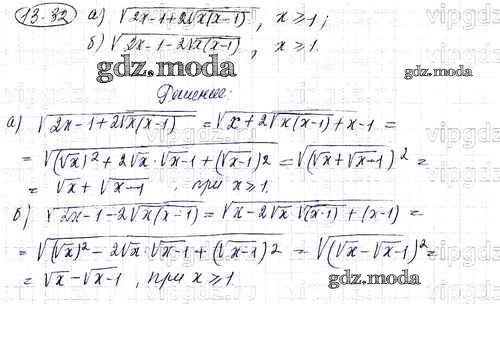 13.32 а) √(2x-1+2√x(x-1)) , x ≥ 1;
б) √(2x-1-2√x(x-1)) , x ≥ 1.
gdz.moda
Решение:
а) √(2x-1+2√x(x-1)) = √(x+2√x(x-1)+x-1) =
= √((√x)²+2√x·√x-1+(√x-1)²) = √((√x+√x-1)²) =
= √x+√x-1 , при x ≥ 1.
б) √(2x-1-2√x(x-1)) = √(x-2√x√(x-1)+(x-1)) =
= √((√x)²-2√x·√x-1+(√x-1)²) = √((√x-√x-1)²) =
= √x-√x-1 , при x ≥ 1.
gdz.moda